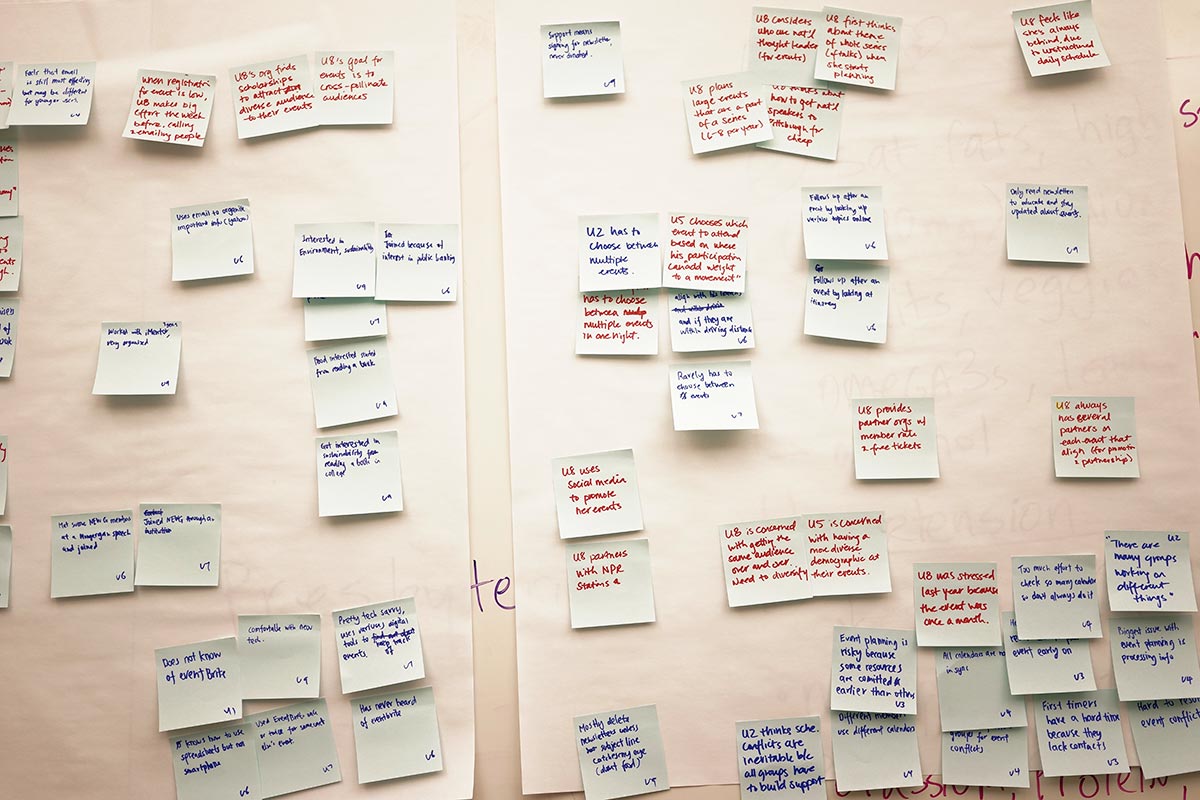 Feels that email
is still most effective
but may be different
for younger
When registration
for event is low,
U8 makes big
effort the week
before, calling
& emailing people
U8's org finds
scholarships
to attract
diverse audience
to their events
U8's goal for
events is to
cross-pollinate
audiences
Uses email to organize
important info (yahoo)
U6
Interested in
Environment, sustainability
U9
Joined because of
interest in public banking
U6
U7
Worked with
very organized
U9
interested started
from reading a book
U9
Got interested in
sustainability from
reading a book in
college
U9
Met some members
at a speech
and joined
U6
Joined through an
institution
U7
Does not know
of eventBrite
U1
comfortable with new
tech.
U9
Pretty tech savvy,
uses various digital
tools to
keep track
of
events.
U7
knows how to use
spreadsheets but not
smartphone
U6
Used EventBrite once
or twice for someone
else's event.
U7
Has never heard
of eventbrite
U6
te
Support means
signing for newsletter,
never donated.
U9
U8 considers
who are nat'l
thought leaders
(for events)
U8 first thinks
about theme
of whole series
(of talks) when
she starts
planning
U8 plans
large events
that are a part
of a series
(6-8 per year)
about
how to get nat'l
speakers to
Pittsburgh for
cheap
U8 feels like
she's always
behind, due
to unstructured
daily schedule
U2 has to
choose between
multiple
events.
U5 chooses which
event to attend
based on where
his participation
"can add weight
to a movement"
has to choose
between
multiple events
in one night.
align with his
and if they are
within driving distance
U6
Rarely has to
choose between
events
U7
Follows up after an
event by looking up
various topics online
U6
Follows up after an
event by looking at
itinerary
U6
Only read newsletter
to educate and stay
updated about events.
U9
U8 provides
partner orgs w/
member rate
& free tickets
U8 always
has several
partners on
each event that
align (for promotion
& partnership)
U8 uses
social media
to promote
her events
U8 partners
with NPR
Stations
U8 is concerned
with getting the
same audience
over and over.
Need to diversify
U5 is concerned
with having a
more diverse
demographic at
their events.
U8 was stressed
last year because
the event was
once a month.
Too much effort to
check so many calendars
so don't always do it
U4
U2
"There are
many groups
working on
different
things"
Event planning is
risky because
some resources
are committed
earlier than others
U3
All calendars are not
in sync
U4
event early on
U3
Biggest issue with
event planning is
processing info
U4
Mostly delete
newsletters unless
subject line
catches my eye
(don't find)
U5
U2 thinks sche.
conflicts are
inevitable b/c
all groups have
to build support
Different members
use different calendars
U4
groups for event
conflicts
U4
First timers
have a hard time
because they
lack contacts
U3
Hard to
event conflicts